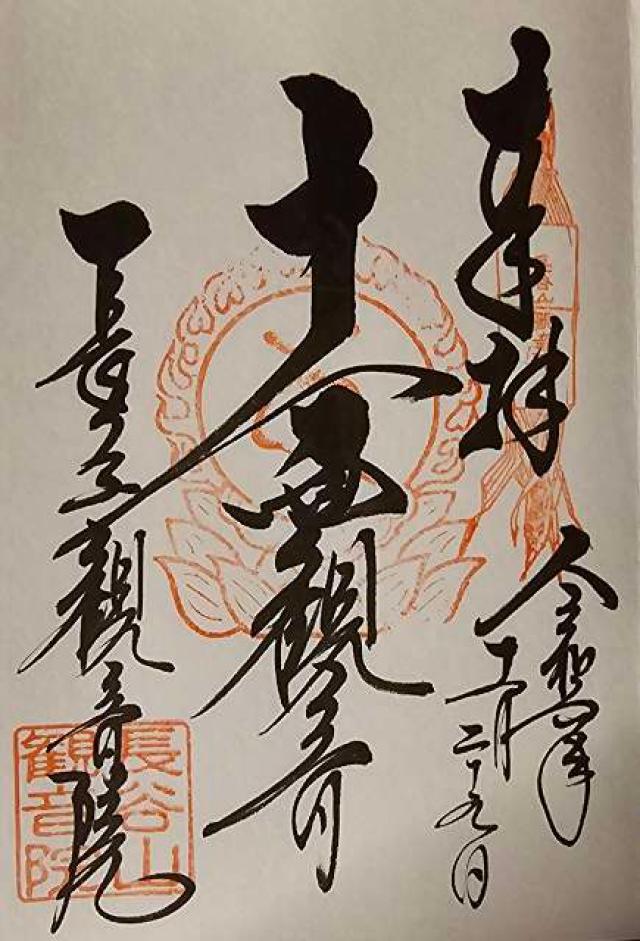 奉拝
十一面観音
長谷観音院
令和
十一月二十九日
長谷山
観音院